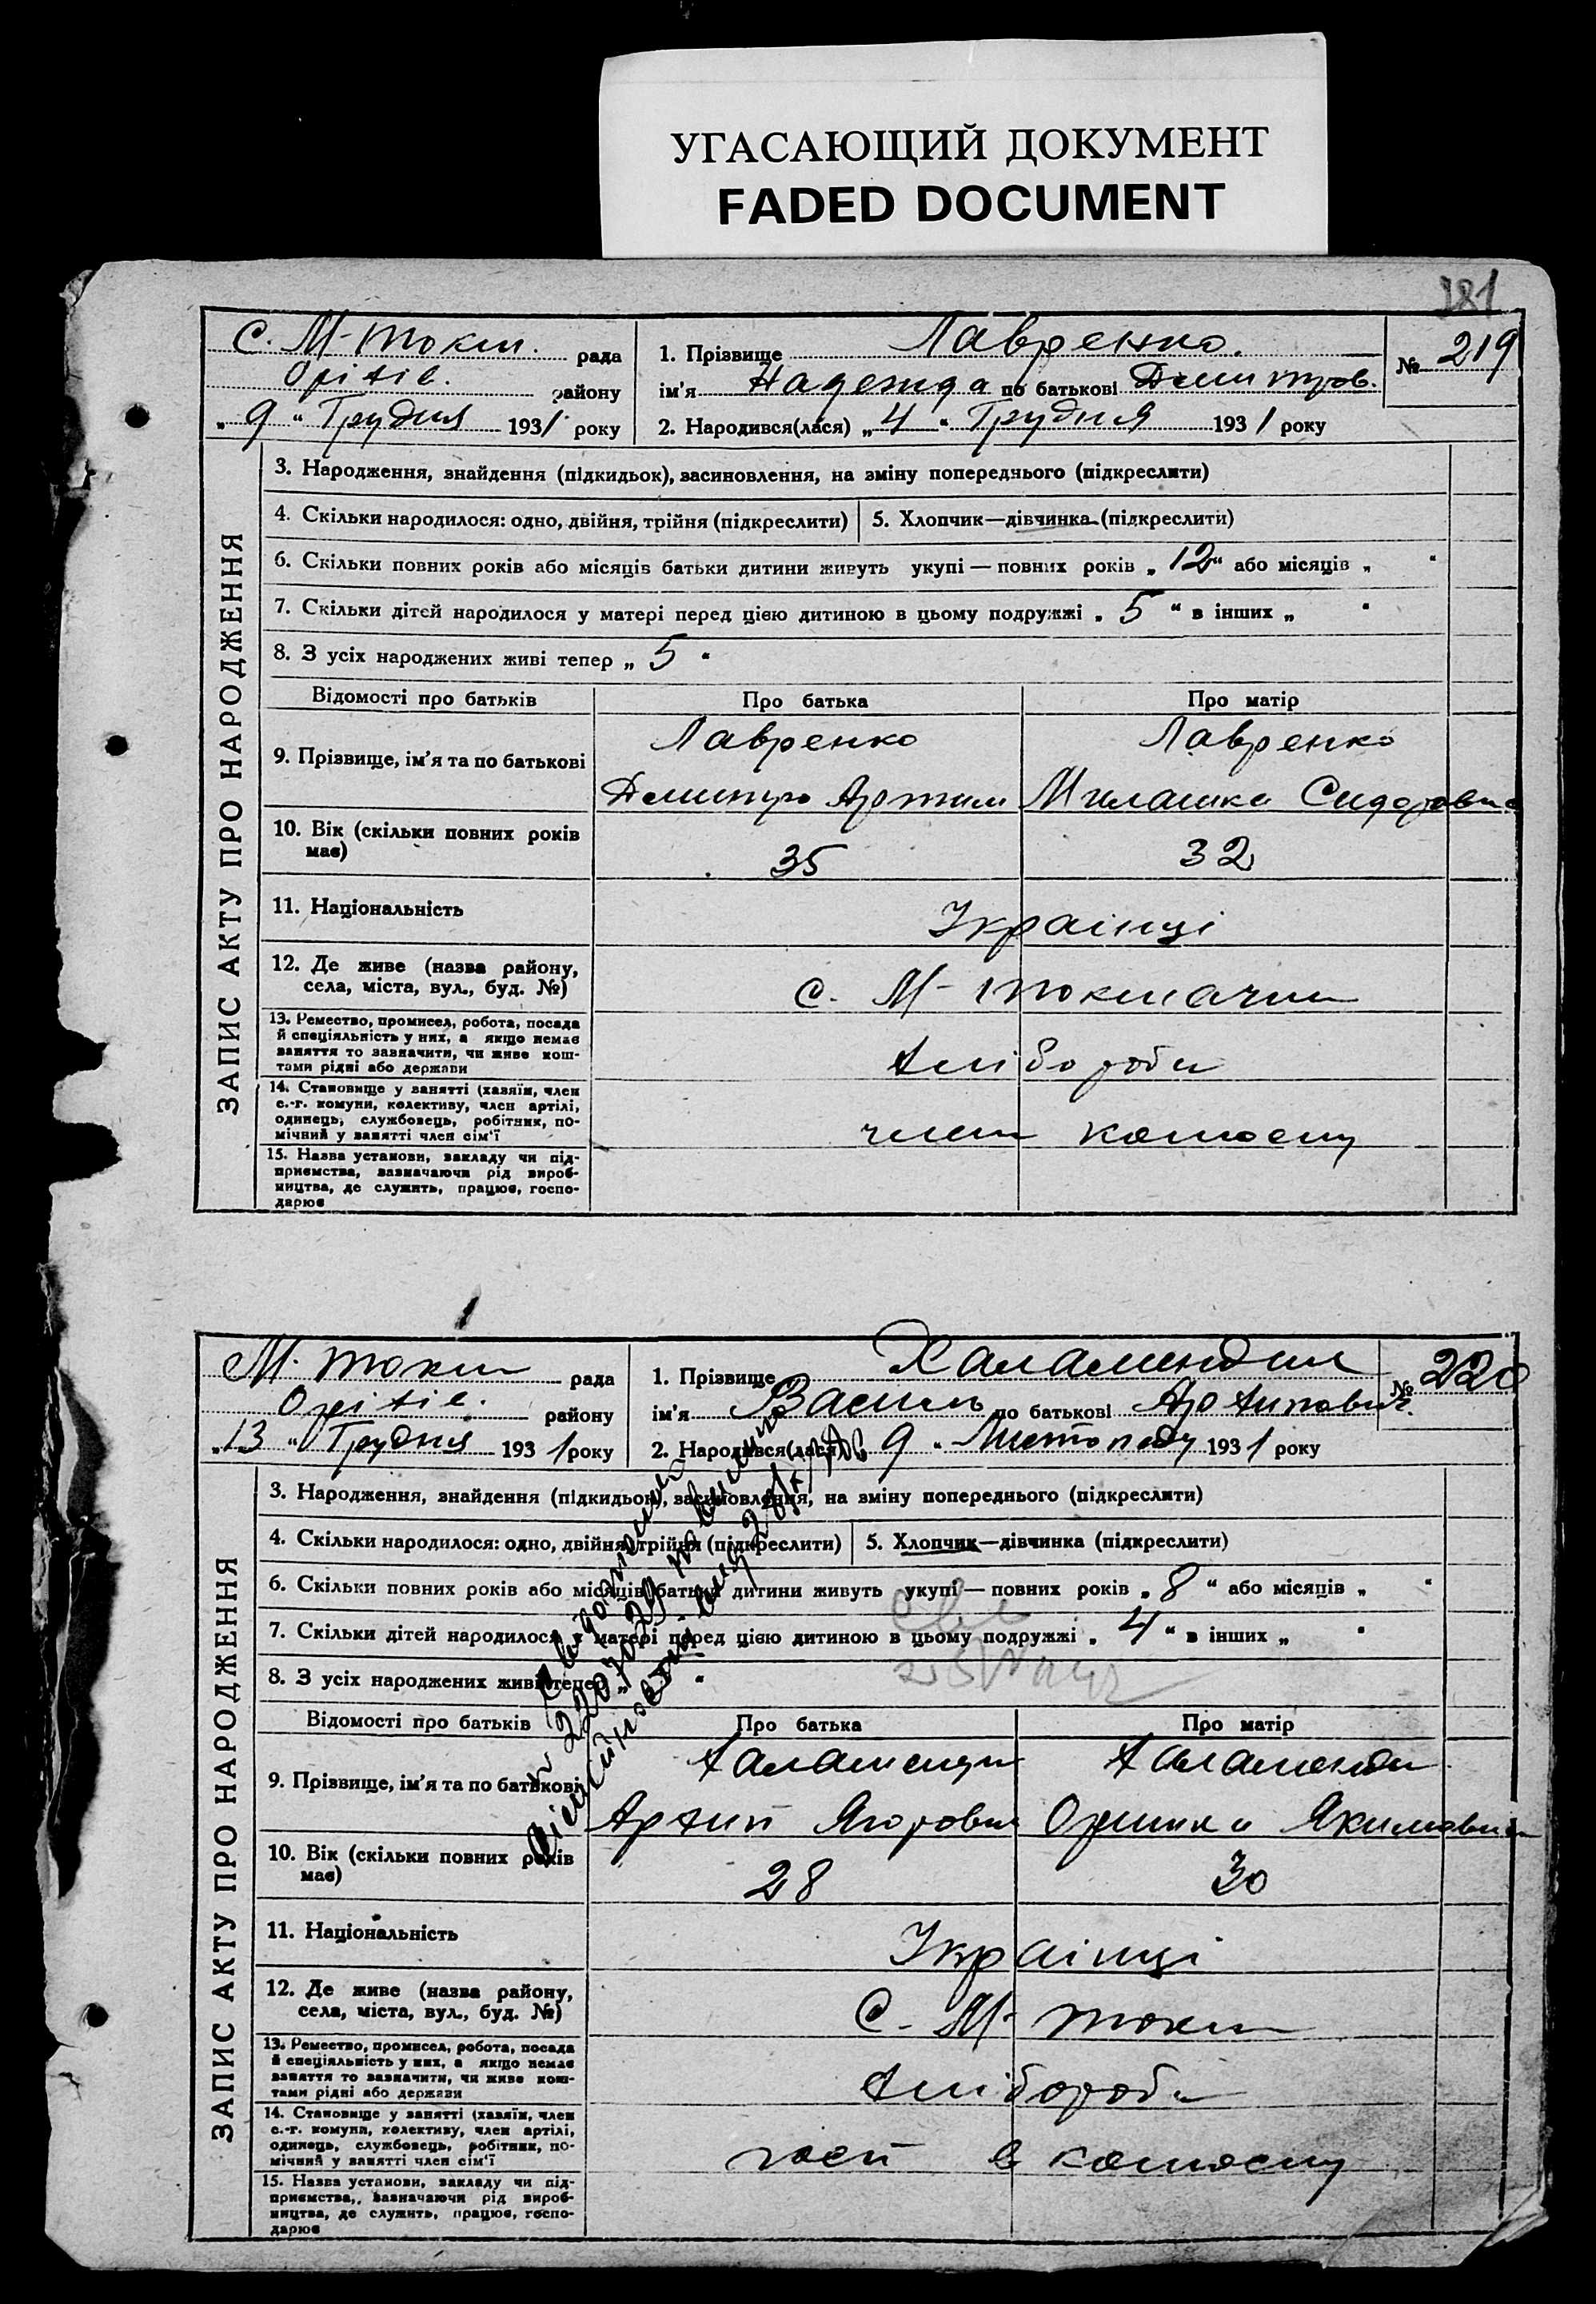 УГАСАЮЩИЙ ДОКУМЕНТ
FADED DOCUMENT
181
С. М-Токм. рада
Оріхів. району
„ 9 “ Грудня 1931 року
1. Прізвище Лавренко.
ім'я Надежда по батькові Дмитров.
2. Народився(лася) „ 4 “ Грудня 1931 року
№ 219
ЗАПИС АКТУ ПРО НАРОДЖЕННЯ
3. Народження, знайдення (підкидьок), засиновлення, на зміну попереднього (підкреслити)
4. Скільки народилося: одно, двійня, трійня (підкреслити)
5. Хлопчик—дівчинка (підкреслити)
6. Скільки повних років або місяців батьки дитини живуть укупі — повних років „ 12 “ або місяців „ “
7. Скільки дітей народилося у матері перед цією дитиною в цьому подружжі „ 5 “ в інших „ “
8. З усіх народжених живі тепер „ 5 “
Відомості про батьків Про батька Про матір
9. Прізвище, ім'я та по батькові
Лавренко Лавренко
Дмитро Артим Милашка Сидоровна
10. Вік (скільки повних років має)
35 32
11. Національність
Українці
12. Де живе (назва району, села, міста, вул., буд. №)
с. М-Токмачни
13. Ремество, промисел, робота, посада й спеціяльність у них, а якщо немає заняття то зазначити, чи живе коштами рідні або держави
Хлібороби
14. Становище у занятті (хазяїн, член с.-г. комуни, колективу, член артілі, одинець, службовець, робітник, помічний у занятті член сім'ї
член
15. Назва установи, закладу чи підприємства, зазначаючи рід виробництва, де служить, працює, господарює
М. Токм рада
Оріхів. району
„ 13 “ Грудня 1931 року
1. Прізвище Халамендик
ім'я Василь по батькові Архипович.
2. Народився(лася) „ 9 “ Листопаду 1931 року
№ 220
ЗАПИС АКТУ ПРО НАРОДЖЕННЯ
3. Народження, знайдення (підкидьок), засиновлення, на зміну попереднього (підкреслити)
4. Скільки народилося: одно, двійня, трійня (підкреслити)
5. Хлопчик—дівчинка (підкреслити)
6. Скільки повних років або місяців батьки дитини живуть укупі — повних років „ 8 “ або місяців „ “
7. Скільки дітей народилося у матері перед цією дитиною в цьому подружжі „ 4 “ в інших „ “
8. З усіх народжених живі тепер „ “
Відомості про батьків Про батька Про матір
9. Прізвище, ім'я та по батькові
Халамендик Халамендик
Архип Ягорович Оришка Якимовна
10. Вік (скільки повних років має)
28 30
11. Національність
Українці
12. Де живе (назва району, села, міста, вул., буд. №)
С. М- Токм
13. Ремество, промисел, робота, посада й спеціяльність у них, а якщо немає заняття то зазначити, чи живе коштами рідні або держави
Хлібороби
14. Становище у занятті (хазяїн, член с.-г. комуни, колективу, член артілі, одинець, службовець, робітник, помічний у занятті член сім'ї
15. Назва установи, закладу чи підприємства, зазначаючи рід виробництва, де служить, працює, господарює